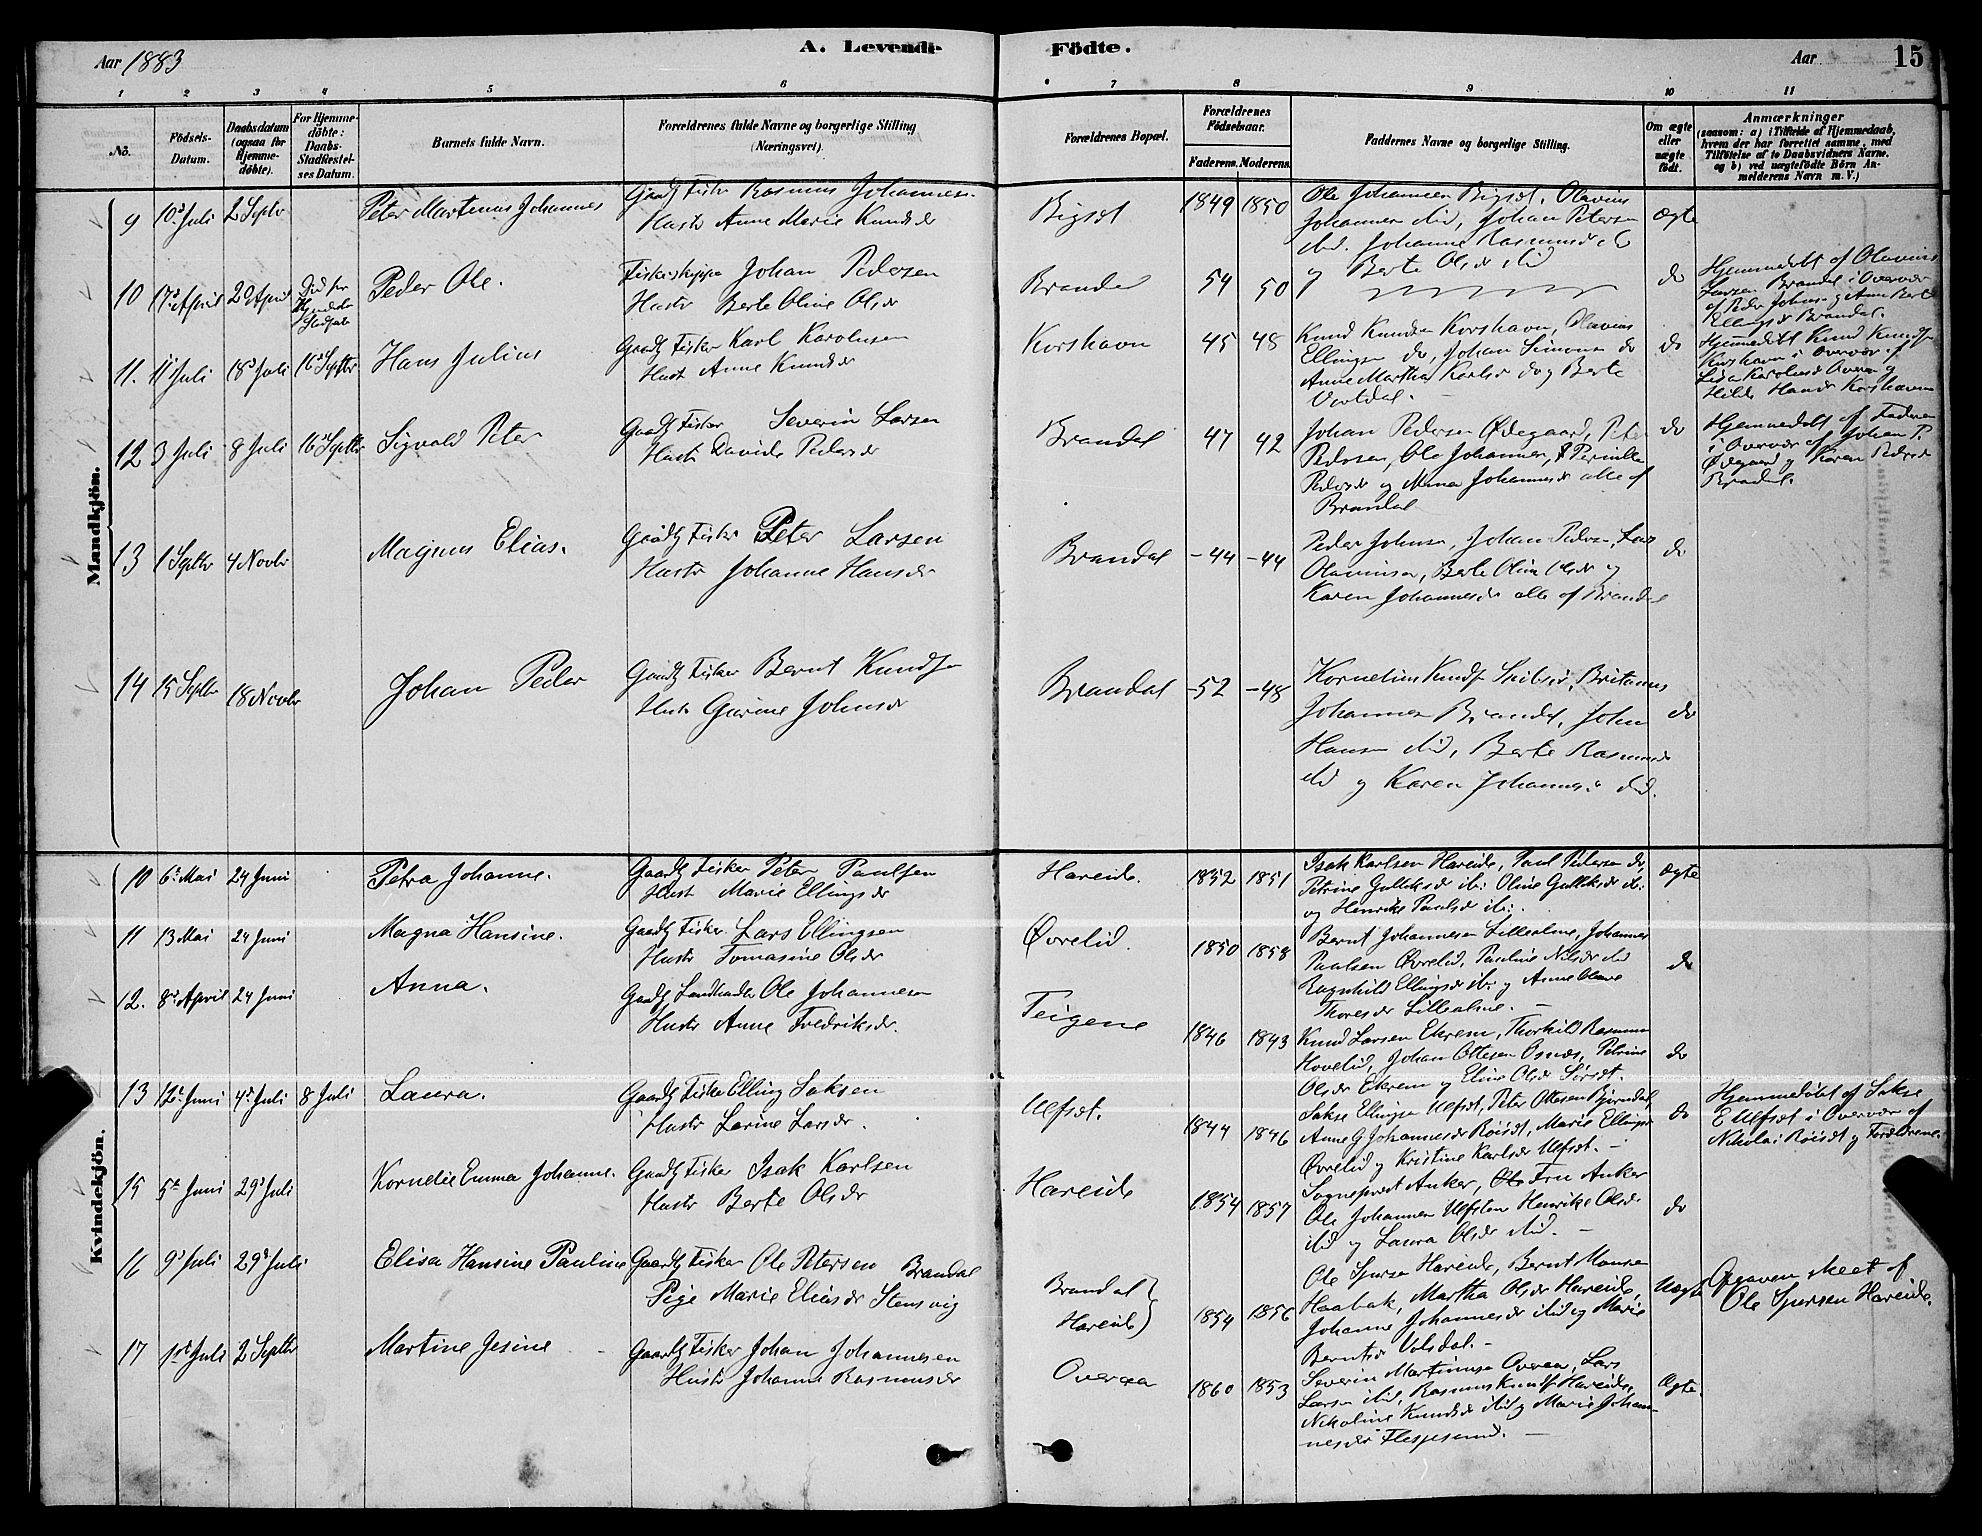 Aar 1883
A. Levende
Födte.
Aar
15
1 2 3 4 5 6
6 7 8 9 10 11
Nö.
Födsels-
Datum.
Daabsdatum
(ogsaa for
Hjemme-
döbte).
For Hjemme-
döbte:
Daabs-
Stadfæstel-
ses Datum.
Barnets fulde Navn.
Forældrenes fulde Navne og borgerlige Stilling
(Næringsvei).
Forældrenes Bopæl.
Forældrenes
Födselsaar.
Faderens. Moderens.
Faddernes Navne og borgerlige Stilling.
Om ægte
eller
uægte
födt.
Anmærkninger
(saasom: a) i Tilfælde af Hjemmedaab,
hvem der har forrettet samme, med
Tilföielse af to Daabsvidners Navne,
og b) ved uægtefödte Börn An-
melderens Navn m. V.)
Mandkjön.
9 10 Juli 2 Septbr Peter Martinus Johannes
Gaardb Fisker Rasmus Johannesen
Hustr Anne Marie Knudsdr
Bigset 1849 1850
Ole Johannesen Bigset, Olavius
Johannesen ibid, Johan Petersen
ibid. Johanne Rasmusdr
og Berte Olsdr ibid
Ægte
10 17 April 29 April
Peder Ole.
Fiskeskipper Johan Pedersen
Hustr Berte Oline Olsdr
Brandal 54 50
do
Hjemmedöbt af Olavius
Larsen Brandal i Overvær
af Peder Johns og Anne Berte
Ellingsdr Brandal.
11. 11 Juli 18 Juli 16 Septbr Hans Julius
Gaardb Fisker Karl Karolusen
Hustr Anne Knudsdr
Korshavn 45 48
Knud Knudsen Korshavn, Olavius
Ellingsen do, Johan Simonsen do
Anne Martha Karlsdr do og Berte
Vartdal.
do
Hjemmedöbt Knud Knudsen
Korshavn i Overvær af
Hilde Hansdr Korshavn
12 3 Juli 8 Juli 16 Septbr Sigvald Peter
Gaardb Fisker Severin Larsen
Hustr Davide Pedersdr
Brandal 47 42
Johan Pedersen Ødegaard, Peter
Pedersen, Ole Johannesen, Pernille
Pedersdr og Anna Johannesdr alle af
Brandal
do
Hjemmedöbt af Faderen
i Overvær af Johan P.
Ødegaard og Karen Pedersdr
Brandal.
13 1 Septbr 4 Novbr Magnus Elias.
Gaardb Fisker Peter Larsen
Hustr Johanne Hansdr
Brandal -44 -44
Peder Johnsen, Johan Pedersen, Lars
Olavinsen, Berte Oline Olsdr og
Karen Johannesdr alle af Brandal
do
14 15 Septbr 18 Novbr Johan Peder
Gaardb Fisker Bernt Knudsen
Hustr Gurine Johnsdr
Brandal -52 -48
Kornelius Knudsen, Britanus
Johannesen Brandal, John
Hansen ibid, Berte Rasmusdr
ibid og Karen Johannesdr ibid.
do
Kvindekjön.
10 6 Mai 24 Juni Petra Johanne.
Gaardb Fisker Peter Paulsen
Hustr Marie Ellingsdr
Hareide. 1852 1851
Isak Karlsen Hareide, Paul Pedersen do,
Petrine Gulliksdr ib: Oline Gulliksdr ib:
og Henrikke Paulsdr ib:.
Ægte
11 13 Mai 24 Juni Magna Hansine.
Gaardb Fisker Lars Ellingsen
Hustr Tomasine Olsdr
Øvrelid. 1850 1858
Bernt Johannesen Lilleалme, Johannes
Paulsen Øvrelid, Pauline Nilsdr ibid
Ragnhild Ellingsdr ib: og Anne Oline
Thoresdr.
do
12. 8 April 24 Juni Anna.
Gaardb Landhandler Ole Johannesen
Hustr Anne Fredriksdr.
Teigene 1846 1843
Knud Larsen Ekrem, Thorkild Rasmussen
Hovelid, Johan Ottesen Osnæs, Petrine
Olsdr Ekrem og Eline Olsdr.
do
13 12 Juni 4 Juli 8 Juli Laura.
Gaardb Fisker Elling Saksen
Hustr Larine Larsdr.
Ulfset. 1844 1846
Sakse Ellingsen Ulfset, Peter Ottesen Bjørndal,
Anne G Johannesdr Röiset, Marie Ellingsdr
Øvrelid og Kristine Karlsdr Ulfset.
do
Hjemmedöbt af Sakse
E Ulfset i Overvær af
Nikolai Röiset og Forældrene.
15 5 Juni 29 Juli Kornelie Emma Johanne.
Gaardb Fisker Isak Karlsen
Hustr Berte Olsdr
Hareide 1854 1857
Sogneprest Anker, Fru Anker
Ole Johannesen Ulfsten Henrikke Olsdr
ibid og Laura Olsdr ibid.
do
16 9 Juli 29 Juli Elisa Hansine Pauline
Gaardb Fisker Ole Petersen Brandal
Pige Marie Eliasdr Stensvig
Brandal }
Hareide }
1854 1856
Ole Spersen Hareide, Bernt Monsen
Haabak, Martha Olsdr Hareide,
Johanne Johannesdr ibid og Marie
Berntsdr Volsdal.
Uægte
Opgaven skeet af
Ole Spersen Hareide.
17 1 Juli 2 Septbr Martine Jesine
Gaardb Fisker Johan Johannesen
Hustr Johanne Rasmusdr
Overaa 1860 1853
Severin Martinusen Overaa, Lars
Larsen ibid, Rasmus Knudsen Hareide,
Nikoline Knudsdr ibid og Marie Johan-
nesdr Flesjesund.
Ægte.